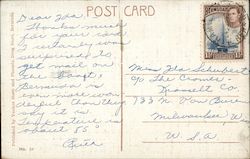 POST CARD
Dear Ida,
Thanks much
for your card
I certainly was
surprised to
get mail on
the boat.
Bermuda is
even more won-
derful than they
say it is.
temperature is
about 85°
Ruth
Miss Ida Schubert
c/o The Cramer-
Krasselt Co
733 N Van Buren
Milwaukee W
U.S.A
No. 10